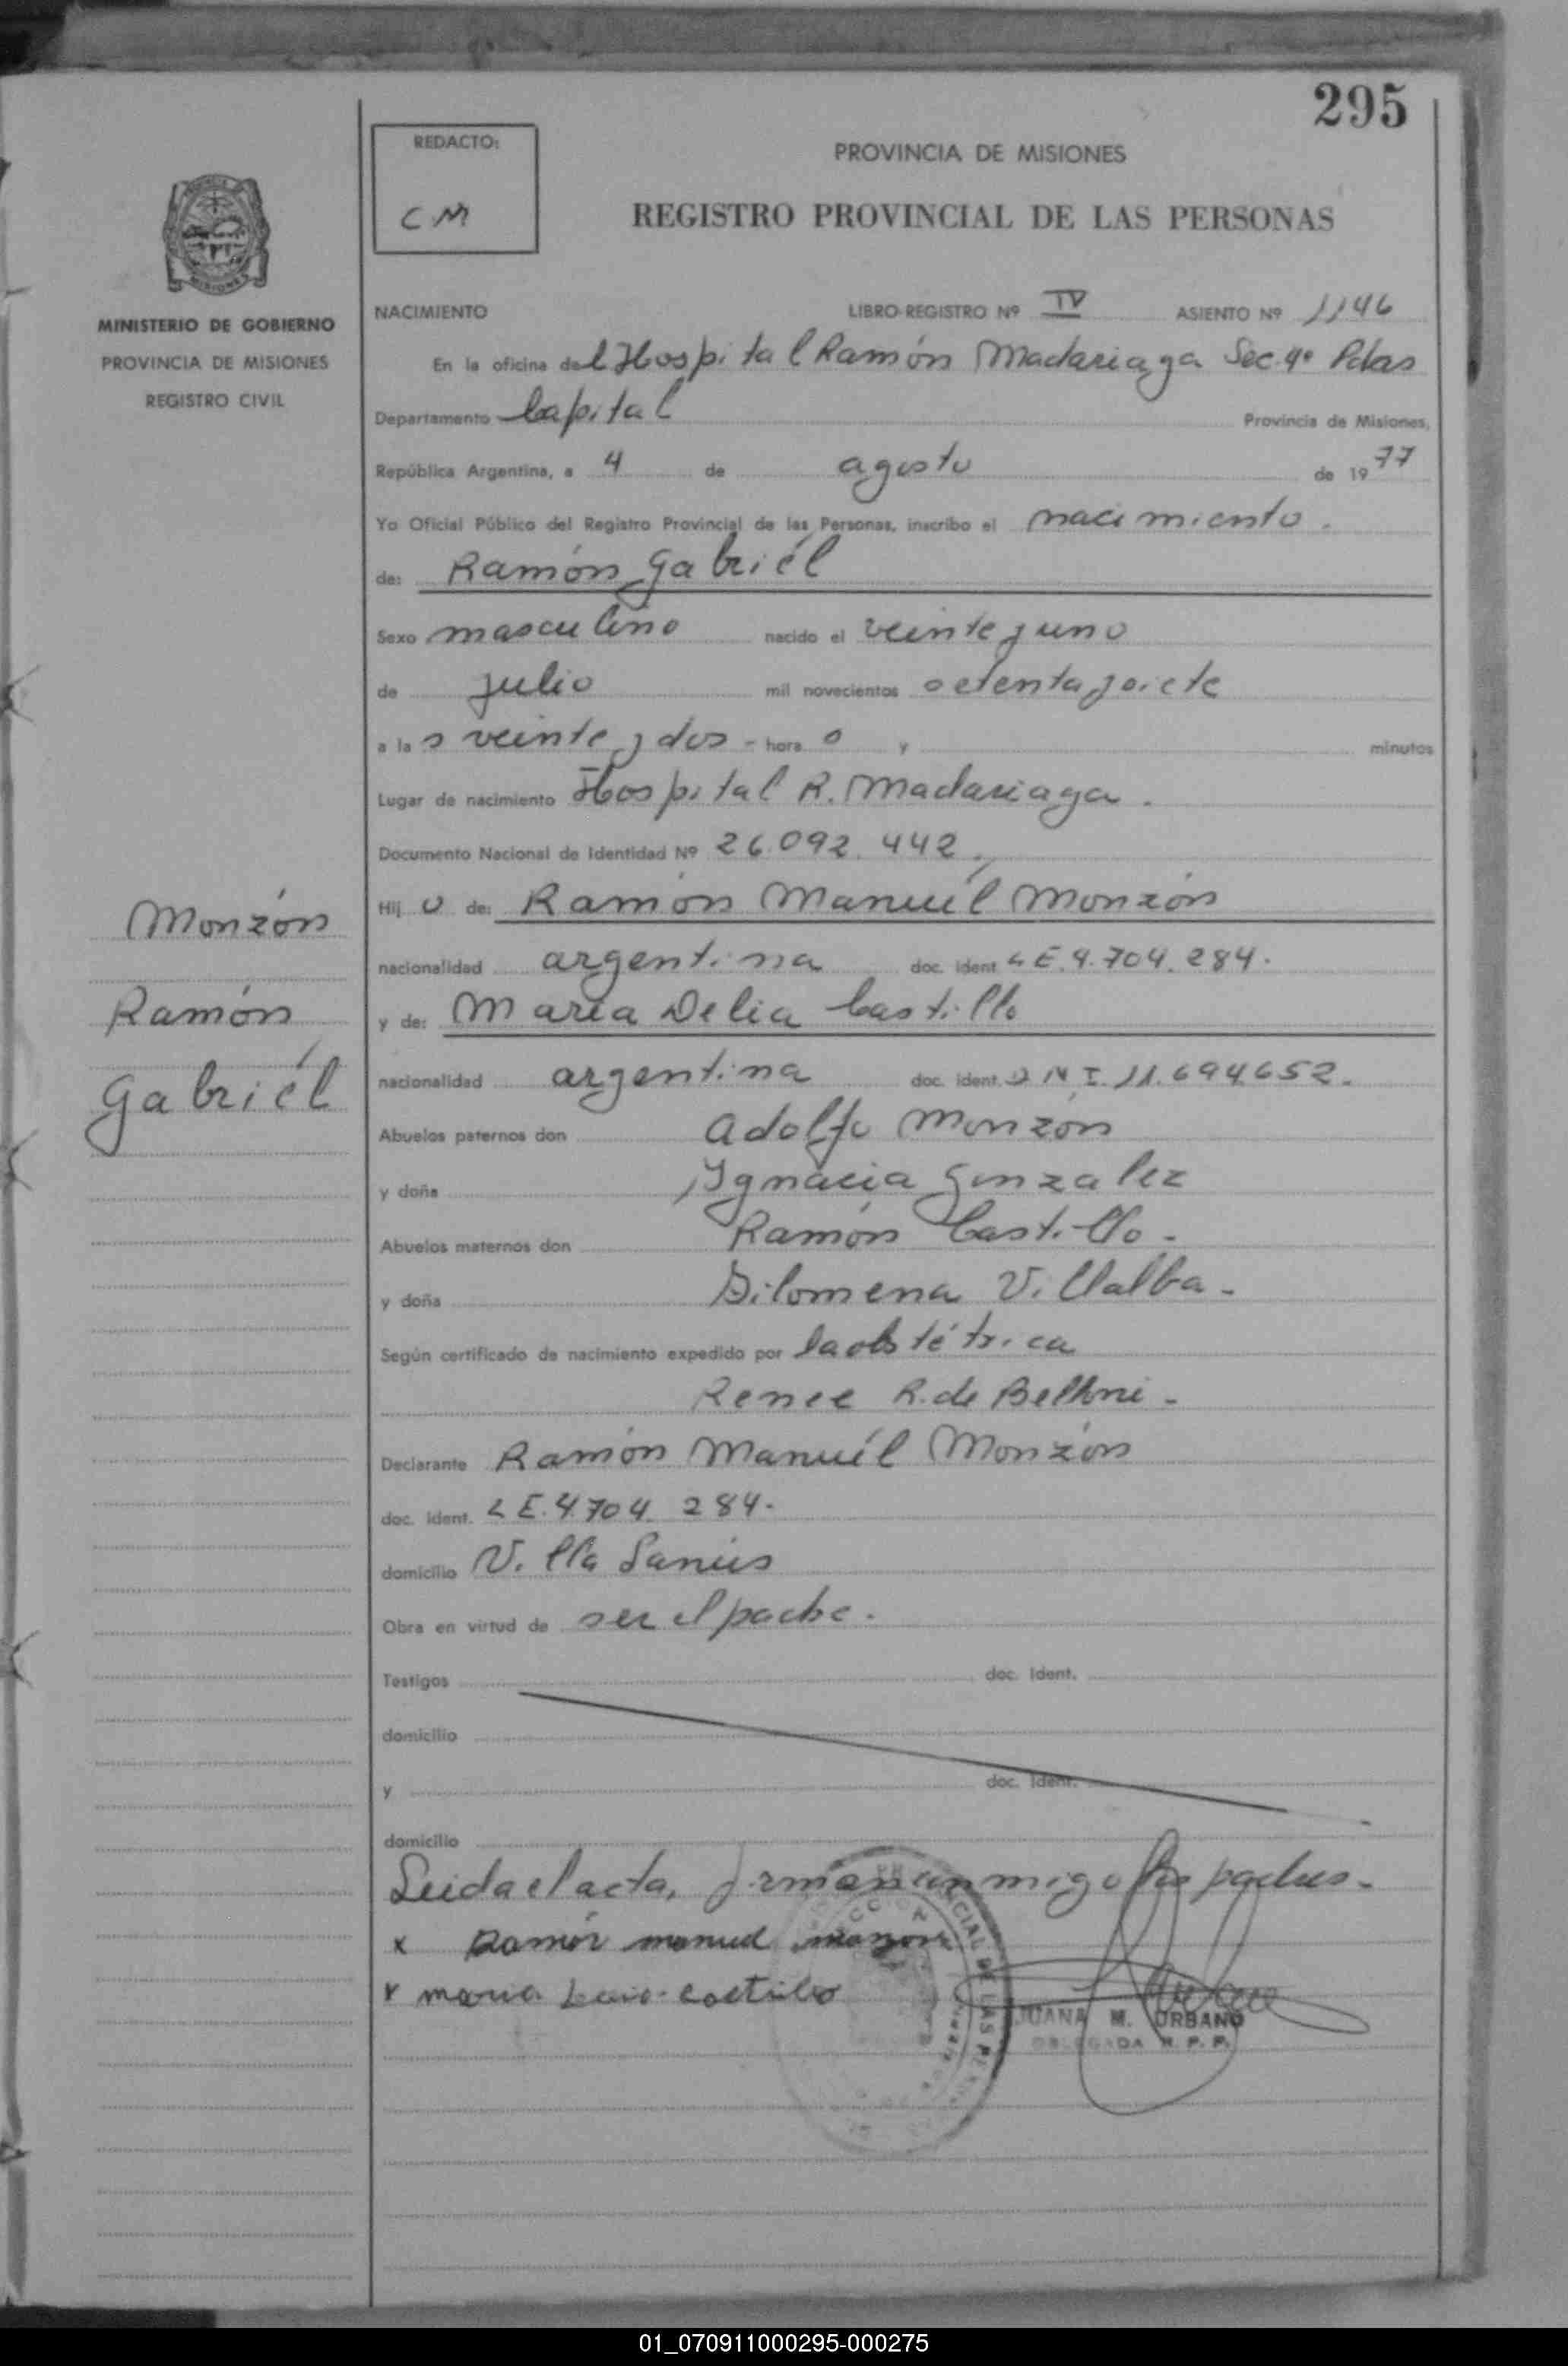 295
REDACTO:
CM
PROVINCIA DE MISIONES
REGISTRO PROVINCIAL DE LAS PERSONAS
MINISTERIO DE GOBIERNO
PROVINCIA DE MISIONES
REGISTRO CIVIL
NACIMIENTO LIBRO-REGISTRO Nº IV ASIENTO Nº 1146
En la oficina del Hospital Ramón Madariaga Sec. 4º Pdas
Departamento Capital Provincia de Misiones,
República Argentina, a 4 de agosto de 1977
Yo Oficial Público del Registro Provincial de las Personas, inscribo el nacimiento.
de: Ramón Gabriél
Sexo masculino nacido el veinte y uno
de julio mil novecientos setenta y siete
a las veinte y dos - hora 0 y minutos
Lugar de nacimiento Hospital R. Madariaga.
Documento Nacional de Identidad Nº 26.092.442,
Hijo de: Ramón Manuél Monzón
nacionalidad argentina doc. ident. LE.4.704.284.
y de: María Delia Castillo
nacionalidad argentina doc. ident. DNI.11.694652.
Abuelos paternos don Adolfo Monzón
y doña Ygnacia Gonzalez
Abuelos maternos don Ramón Castillo.
y doña Filomena Villalba.
Según certificado de nacimiento expedido por la obstétrica
Renee R. de Belloni.
Declarante Ramón Manuél Monzón
doc. ident. LE.4.704.284.
domicilio Villa Lanús
Obra en virtud de ser el padre.
Testigos doc. ident.
domicilio
y doc. ident.
domicilio
Leida el acta, firman conmigo los padres.
x Ramón manuel monzon
x maria Castillo
JUANA M. URBANO
DELEGADA R. P. P.
Monzón
Ramón
Gabriél
01_070911000295-000275